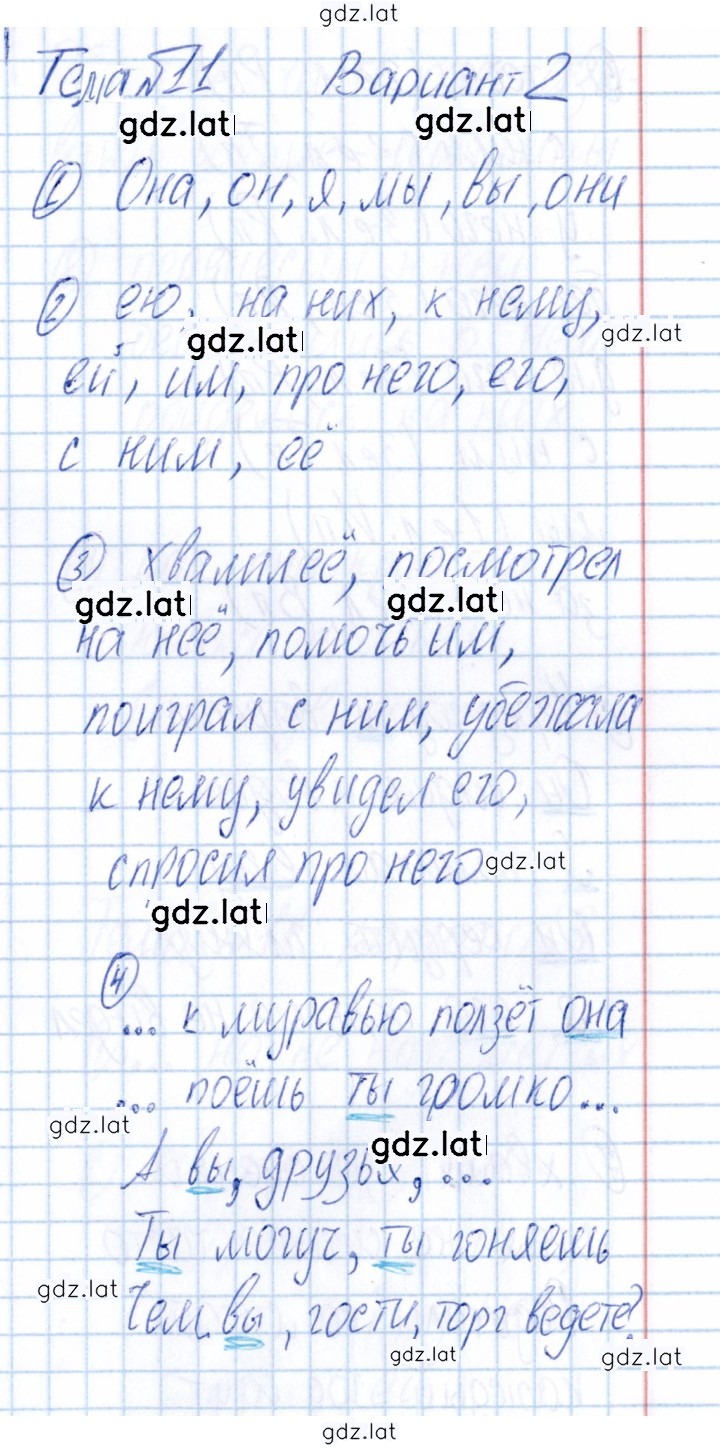 gdz.lat
Тема №11 Вариант 2
gdz.lat gdz.lat
1 Она, он, я, мы, вы, они
2 ею, на них, к нему,
gdz.lat gdz.lat
ей, им, про него, его,
с ним, её
3 хвалил её, посмотрел
gdz.lat gdz.lat
на неё, помочь им,
поиграл с ним, убежала
к нему, увидел его,
спросил про него gdz.lat
gdz.lat
4
... к муравью ползёт она
... поёшь ты громко...
gdz.lat gdz.lat
А вы, друзья, ...
Ты могуч, ты гоняешь
gdz.lat
Чем вы, гости, торг ведете?
gdz.lat gdz.lat
gdz.lat